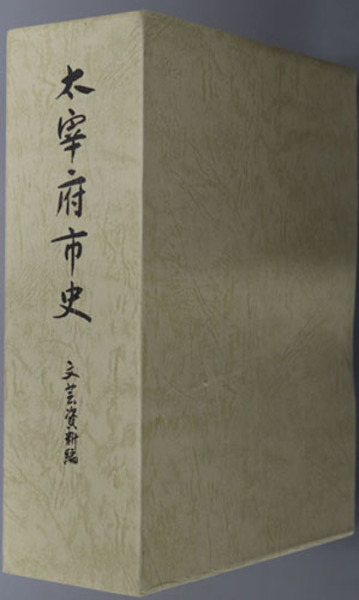 太宰府市史
文芸資料編